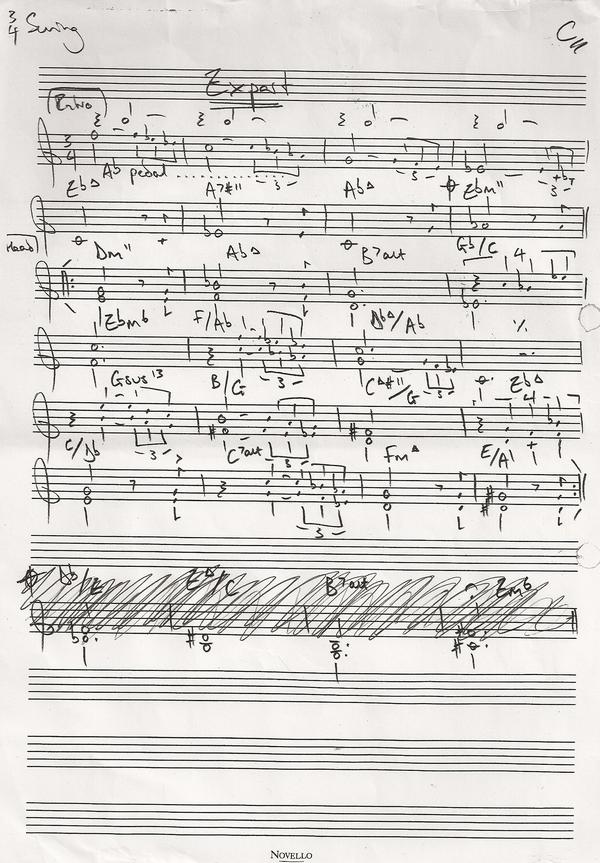 3/4 Swing
Expart
Intro
3 4
Ab pedal 3 3 3
Eb△ A7#11 Ab△ Ebm11
Head
Dm11 Ab△ B7alt Gb/C 4
Ebm6 F/Ab 3 Db△/Ab 3 ٪
Gsus13 3 B/G 3 C△#11/G Eb△ 4
C/Db C7alt 3 Fm△ E/A
Db/E E△/C B7alt Em6
NOVELLO